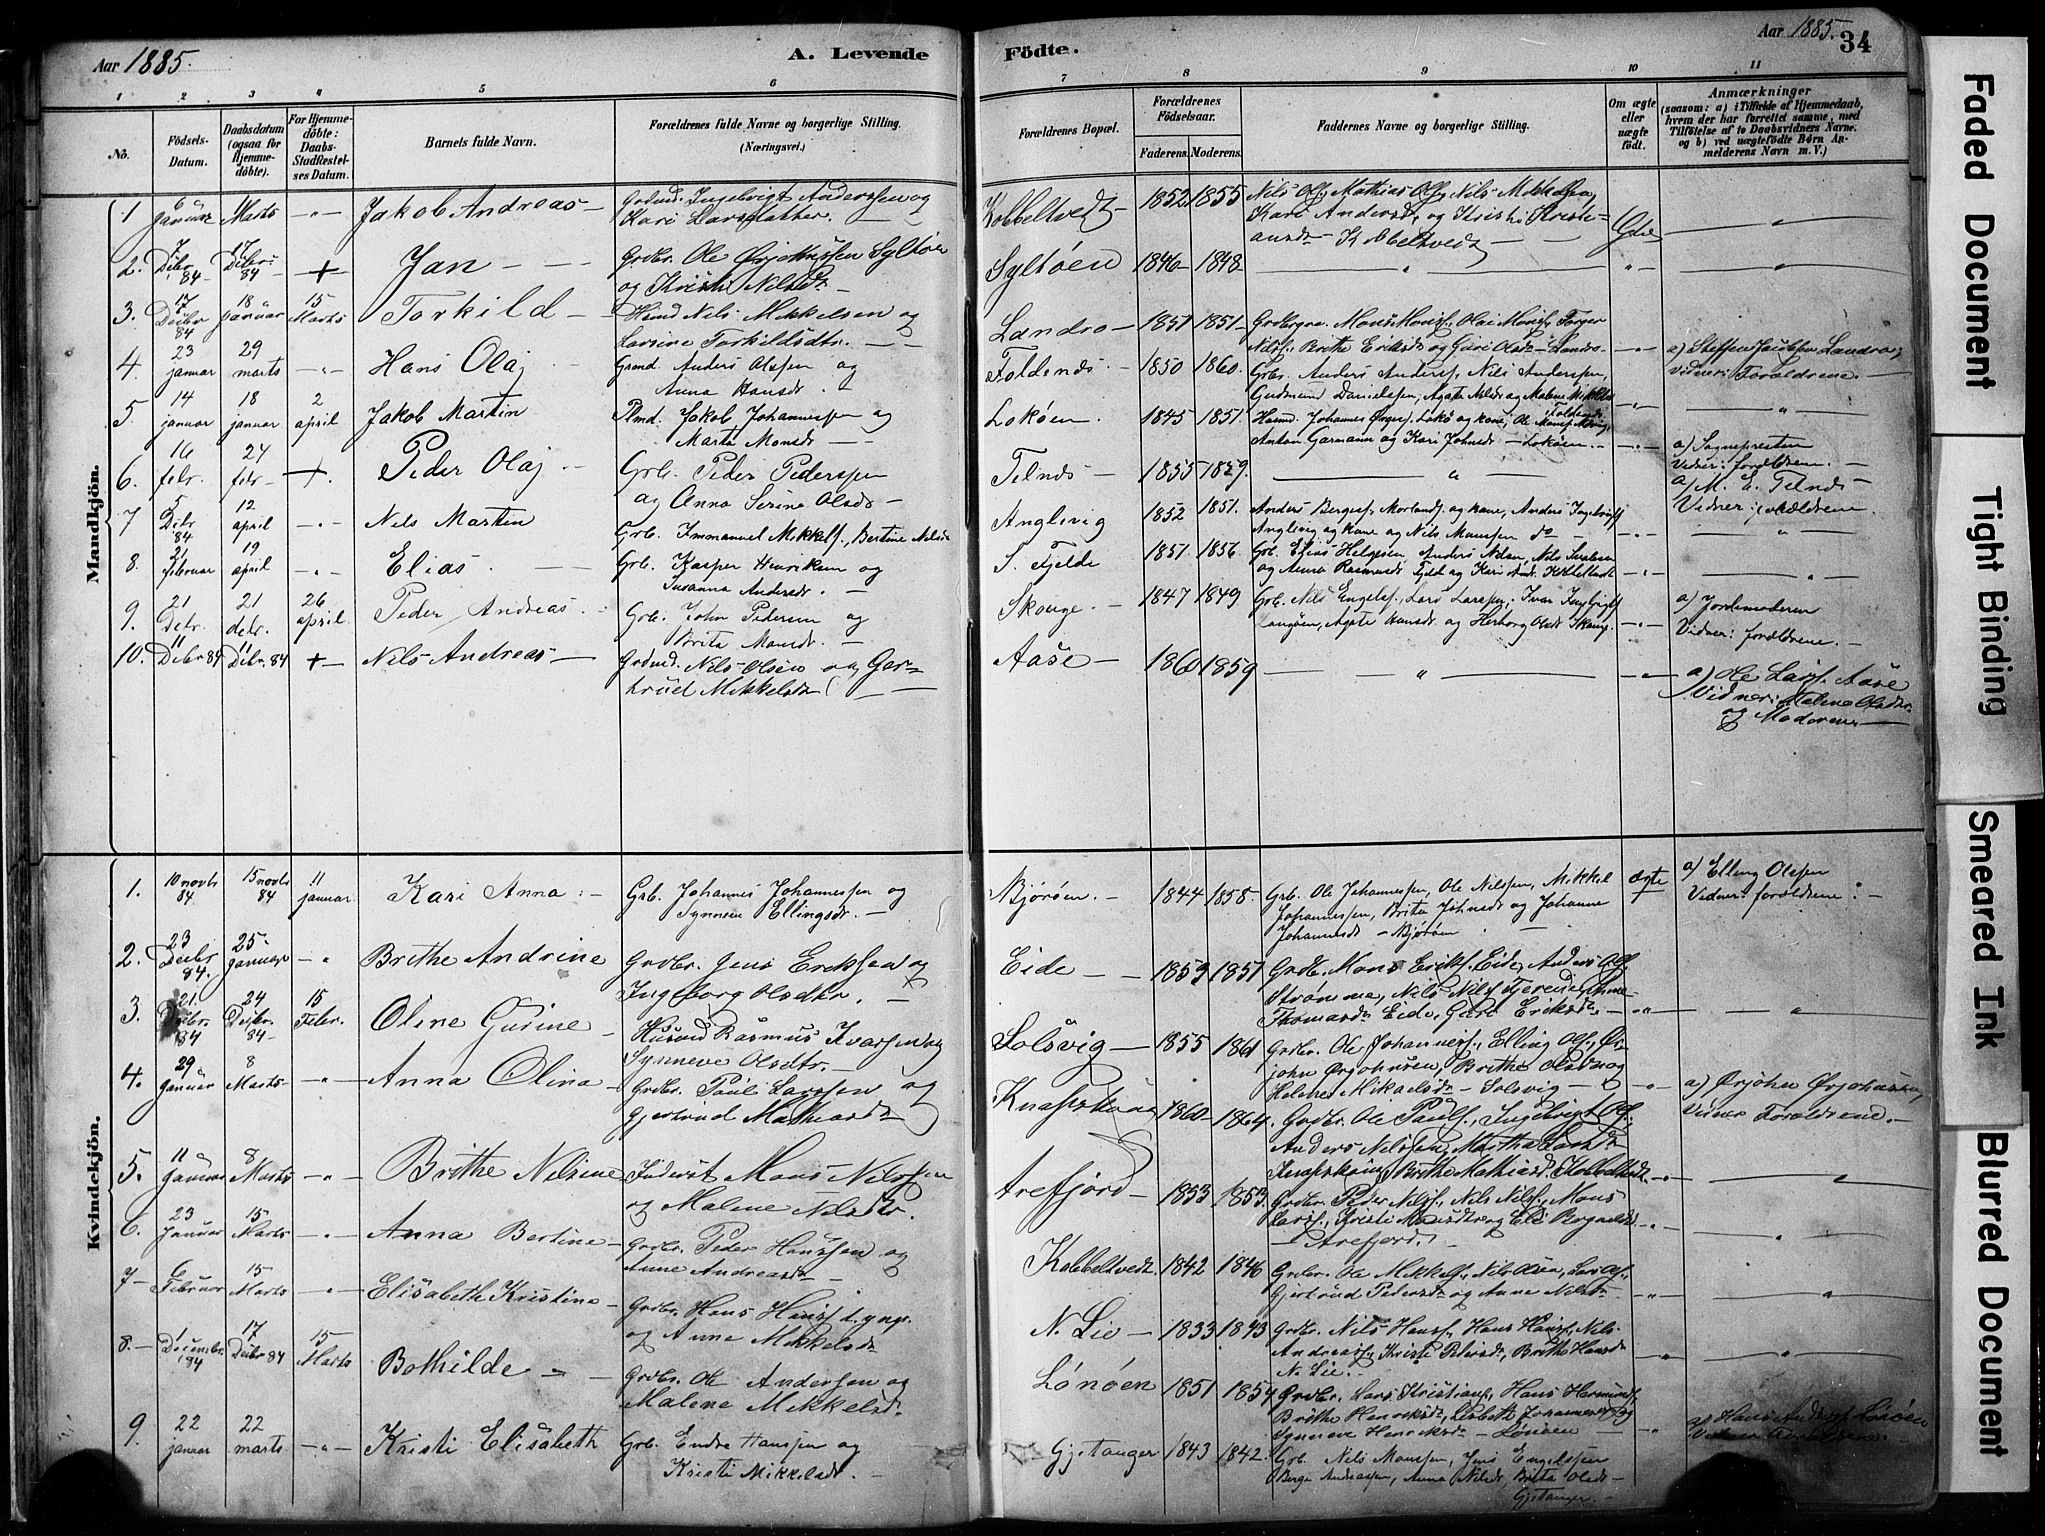 Aar 1885.
A. Levende
Födte.
Aar 1885.
34
1 2 3 4 5 6 7 8 9 10 11
No.
Födsels-
Datum.
Daabsdatum
(ogsaa for
Hjemme-
döbte).
For Hjemme-
döbte:
Daabs-
Stadfestel-
ses Datum.
Barnets fulde Navn.
Forældrenes fulde Navne og borgerlige Stilling.
(Næringsvei.)
Forældrenes Bopæl.
Forældrenes
Födselsaar.
Faderens. Moderens.
Faddernes Navne og borgerlige Stilling.
Om ægte
eller
uægte
födt.
Anmærkninger
(saasom: a) i Tilfælde af Hjemmedaab,
hvem der har forrettet samme, med
Tilföielse af to Daabsvidners Navne.
og b) ved uægtefödte Börn An-
melderens Navn m. V.)
Mandkjön.
1 6 Januar Marts -"- Jakob Andreas- Ingebrigt Anderssen og
Kari Larsdatter. Kobbeltvedt 1852 1855 Nils Olss, Mathias Olss, Nils Mikkelsen,
Kari Andersd, og Kristi Kristi-
ansd- Kobbeltvedt
2. 7 Decbr 84 17 Decbr 84 + Jan Grdbr. Ole Ørjohnssen Syltöen
og Kristi Nilsdr. Syltöen 1846 1848 "
3. 17 Decbr 84 18 Januar 15 Marts Torkild Nils Mikkelsen og
Larsine Torkildsdtr. Landro 1851 1851 Mons Monss, Olai Monss, Torger
Nilss, Brithe Eriksd og Guri Olsd- Landro
4. 23 januar 29 marts -"- Hans Olaj Anders Olssen og
Anna Hansdr. Foldenes 1850 1860. Grb. Anders Anderss, Nils Anderssen,
Gudmund Danielsen, Agate Nilsd og Malene Mikkelsd
Foldenes
a) Steffen Jacobsen Landro,
Vidner: Forældrene.
5. 14 januar 18 januar 2 april Jakob Martin Plmd. Jakob Johannessen og
Marta Monsdr Loköen 1845 1851. Johannes Lokö og kone, Ole Monss
Anton Garmann og Kari Johnsdr - Loköen.
6. 16 febr. 24 febr + Peder Olaj Grb. Peder Pederssen
og Anna Serine Olsdr Telnes 1855 1859. "
a) Sognepresten
Vidner: forældrene.
7 5 Decbr 84 12 april -"- Nils Martin Grb. Immanuel Mikkelss, Bertine Nilsdr Anglevig 1852 1851. Anders Bergess, Morland og kone, Anders Ingebrigts
Anglevig og kone og Nils Monssen do
a) M. E. Telnes
Vidner: forældrene.
8. 21 februar 19 april -"- Elias. Grb. Kasper Henriksen og
Susanna Andersdr. S. Fjelde 1851. 1856. Grb. Elias Helgesen Anders
og Anna Rasmusdr Fjeld og Kari Andr. Kobbeltvedt
9. 21 Decbr. 21 decbr. 26 april Peder Andreas Grb. John Pedersen og
Brita Monsdr. Skauge 1847 1849 Grb. Nils Engelss, Lars Larssen, Ivar Ingebrigts
Langöen, Agate Hansdr og Herborg Olsdr Skauge.
a) Jordemoderen
Vidner: forældrene.
10. 11 Decbr 84 11 Decbr. 84 + Nils Andreas Nils Olsen og Ger-
trud Mikkelsdr Aase 1860 1859 "
a) Ole Larss. Aase
Vidner: Malene Olsdtr
og Moderen
Kvindekjön.
1. 10 novbr 84. 15 novbr 84 11 januar Kari Anna Grb. Johannes Johannessen og
Synneva Ellingsdr. Björöen. 1844 1858. Grb. Ole Johannessen, Ole Nilssen, Mikkel
Johannessen, Brita Johnsdr og Johanne
Johannesdr - Björöen
ægte
a) Elling Olssen
Vidner: forældrene
2. 23 Decbr 84. 25 Januar -"- Brithe Andrine Grdbr. Jens Eriksen og
Ingeborg Olsdtr. Eide 1859 1851 Grdb. Mons Erikss, Eide, Anders Olss,
Strömme, Nils Nilss
Thomasdr Eide, Guri Eriksdr
3. 21. Decbr. 84 24 Decbr. 84 15 Febr. Oline Gurine Husmd Rasmus Ivarsen og
Synneve Olsdtr. Solsvig 1855 1861 Grdbr. Ole Johanness, Elling Ols, Ør-
john Ørjohnsen, Brithe Olsdr og
Helene Mikaelsdr - Solsvig
a) Ørjohn Ørjohnsen,
Vidner Forældrene.
4. 29 Januar 8 Marts -"- Anna Olina Grdbr. Paul Larssen og
Gjertrud Mathiasdr Knapskaag 1860 1864. Grdbr. Ole Paulss, Ingebrigt Ols,
Anders Nilssen, Martha Larsdr
Knapskaag, Brithe Mathiasd, Kobbeltvedt
5. 11 Januar 8 Marts -"- Brithe Nilsine Inderst Mons Nilssen
og Malene Nilsdtr. Arefjord 1853 1853. Grdbr. Peder Nilss, Nils Nilss, Mons
Larss, Kristi Monsdtr og Eli
Arefjord
6. 23 Januar 15 Marts -"- Anna Bertine Grdbr. Peder Hanssen og
Anne Andreasdr Kobbeltvedt. 1842 1846 Grdbr. Ole Mikkels, Nils Olsen, Lars Ols,
Gjertrud Pedersdr og Anne Nilsdr.
7 6 Februar 15 Marts -"- Elisabeth Kristina Grdbr. Hans Hanss d. yngr.
og Anna Mikkelsdr N. Lie 1833 1843 Grdbr. Nils Hanss, Hans Hanss, Nils
Andreass, Kristi Pedersdr, Brithe Hansdr
N. Lie.
8. 1 Decembr. 84 17 Decbr 84 15 Marts Bothilde Grdbr. Ole Andersen og
Malene Mikkelsdr. Lönöen 1851 1854 Grdbr. Lars Kristians, Hans Hermunds
Brithe Henriksdr, Lisbeth Johannesdr og
Synneve Henriksdr - Lönöen
a) Hans Anderss. Lönöen
9. 22 januar 22 marts -"- Kristi Elisabeth Grb. Endre Hanssen og
Kristi Mikkelsdr. Gjetanger 1843 1842. Grb. Nils Monssen, Jens Engelssen
Berge Andreassen, Anna Nilsdr, Brita Olsdr
Gjetanger.
Faded Document
Tight Binding
Smeared Ink
Blurred Document